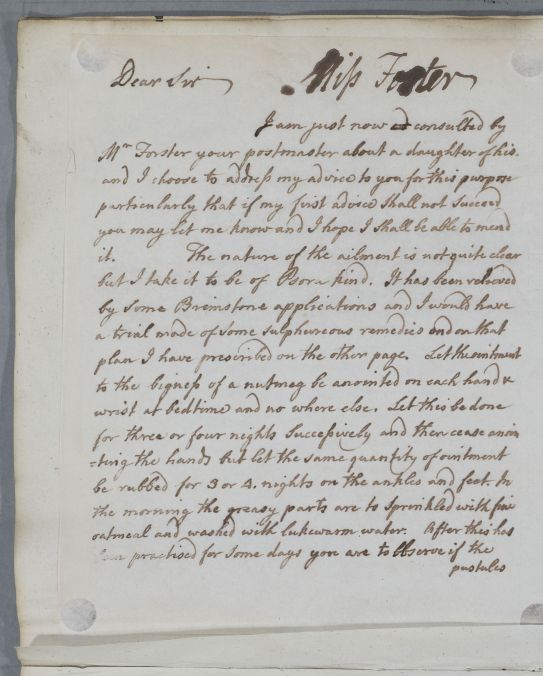 Dear Sir
Miss Forster
I am just now consulted by
Mr Forster your postmaster about a daughter of his
and I choose to address my advice to you for this purpose
particularly that if my first advice shall not succeed
you may let me know and I hope I shall be able to mend
it. The nature of the ailment is not quite clear
but I take it to be of Psora kind. It has been relieved
by some Brimstone applications and I would have
a trial made of some sulphureous remedies and on that
plan I have prescribed on the other page. Let the ointment
to the bigness of a nutmeg be anointed on each hand &
wrist at bedtime and no where else. Let this be done
for three or four nights successively and then cease anoin
=ting the hands but let the same quantity of ointment
be rubbed for 3 or 4 nights on the ankles and feet. In
the morning the greasy parts are to sprinkled with fine
oatmeal and washed with lukewarm water. After this has
been practised for some days you are to observe if the
pustules